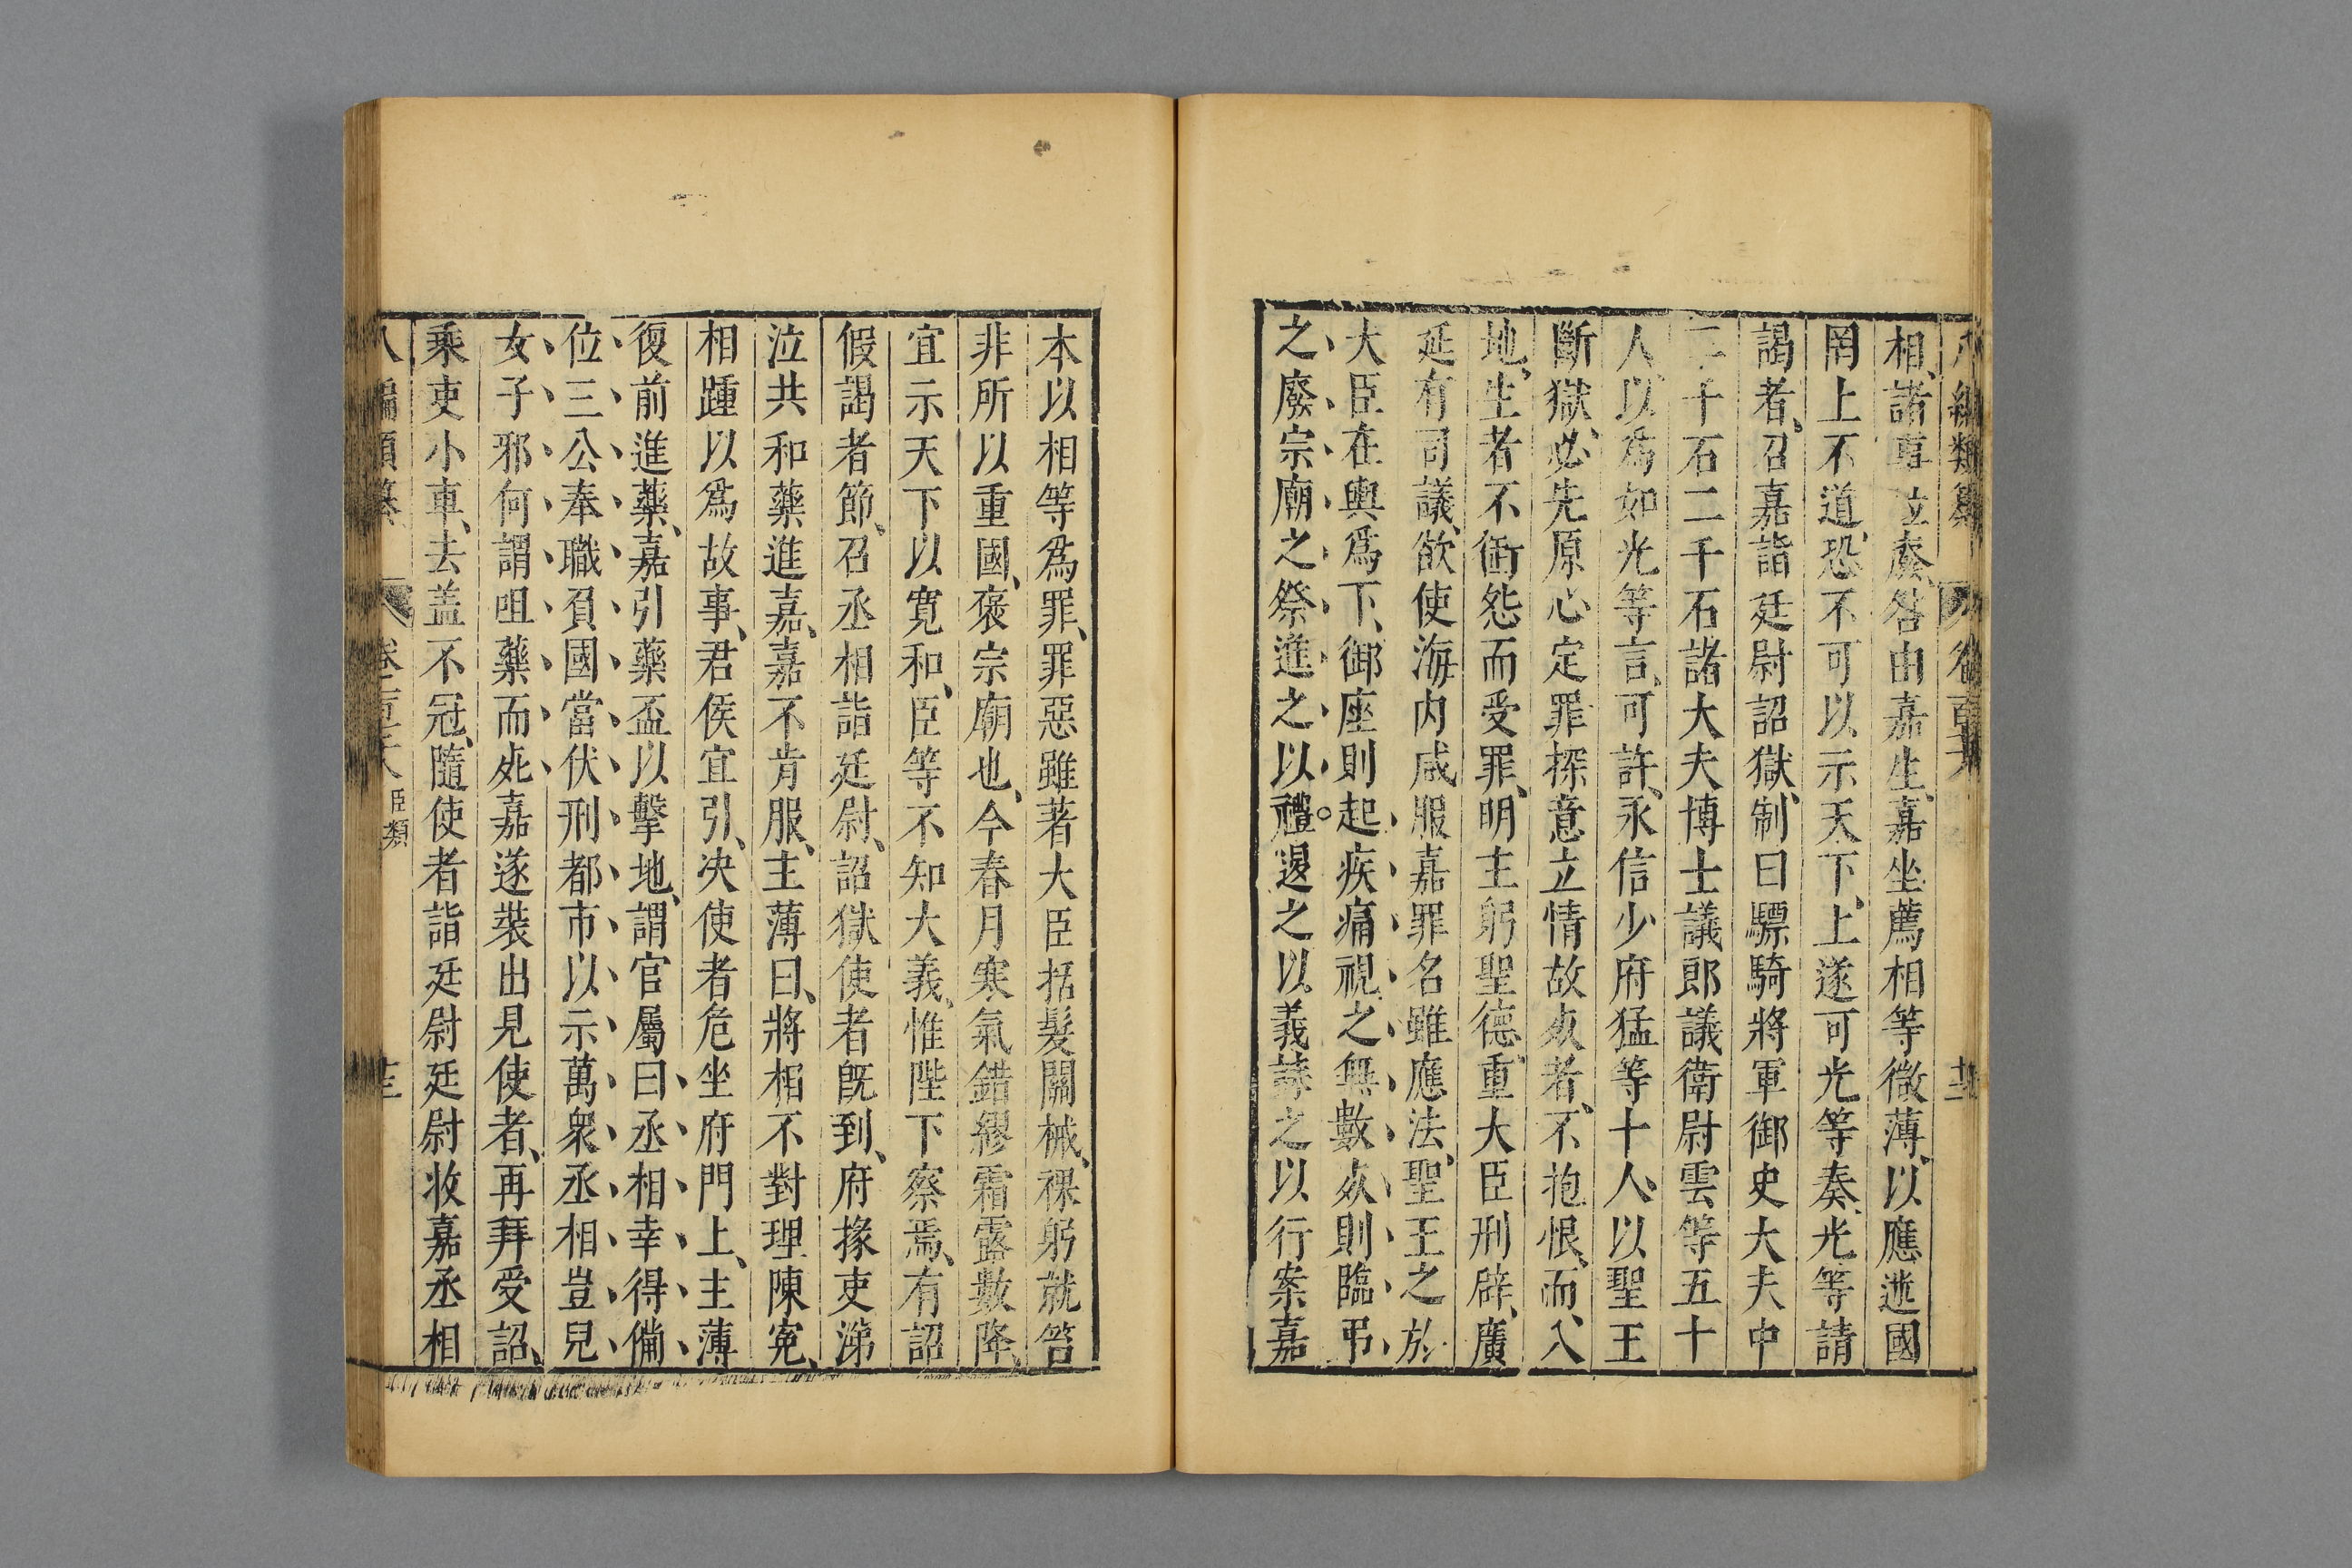 編類纂 卷百六 十二
相、諸尊竝奏、咎由嘉生、嘉坐薦相等微薄、以應迷國
罔上不道、恐不可以示天下、上遂可光等奏、光等請
謁者、召嘉詣廷尉詔獄、制曰驃騎將軍御史大夫中
二千石二千石諸大夫博士議郎議衛尉雲等五十
人、以爲如光等言、可許、永信少府猛等十人、以聖王
斷獄、必先原心定罪、探意立情、故㱙者、不抱恨、而入
地、生者不衘怨而受罪、明主躬聖德、重大臣刑辟、廣
延有司議、欲使海内咸服嘉罪名雖應法、聖王之於
大臣在輿爲下、御座則起疾痛視之無數㱙則臨弔
之廢宗廟之祭進之以禮。退之以義誄之以行案嘉
本以相等爲罪、罪惡雖著大臣括髮關械、裸躬就笞
非所以重國、褒宗廟也、今春月寒氣錯繆霜露數降、
宜示天下以寛和、臣等不知大義、惟陛下察焉、有詔
假謁者節、召丞相詣廷尉、詔獄使者旣到、府掾吏涕
泣共和藥進嘉、嘉不肯服、主薄曰、將相不對理陳寃、
相踵以爲故事、君侯宜引、决使者危坐府門上、主薄
復前進藥、嘉引藥盃以擊地、謂官屬曰丞相幸得備
位三公奉職負國當伏刑都市以示萬衆丞相豈兒
女子邪何謂咀藥而死嘉遂裝出見使者、再拜受詔、
乘吏小車、去盖不冠、隨使者詣廷尉廷尉收嘉丞相
八編類纂 卷百六 臣類 十三